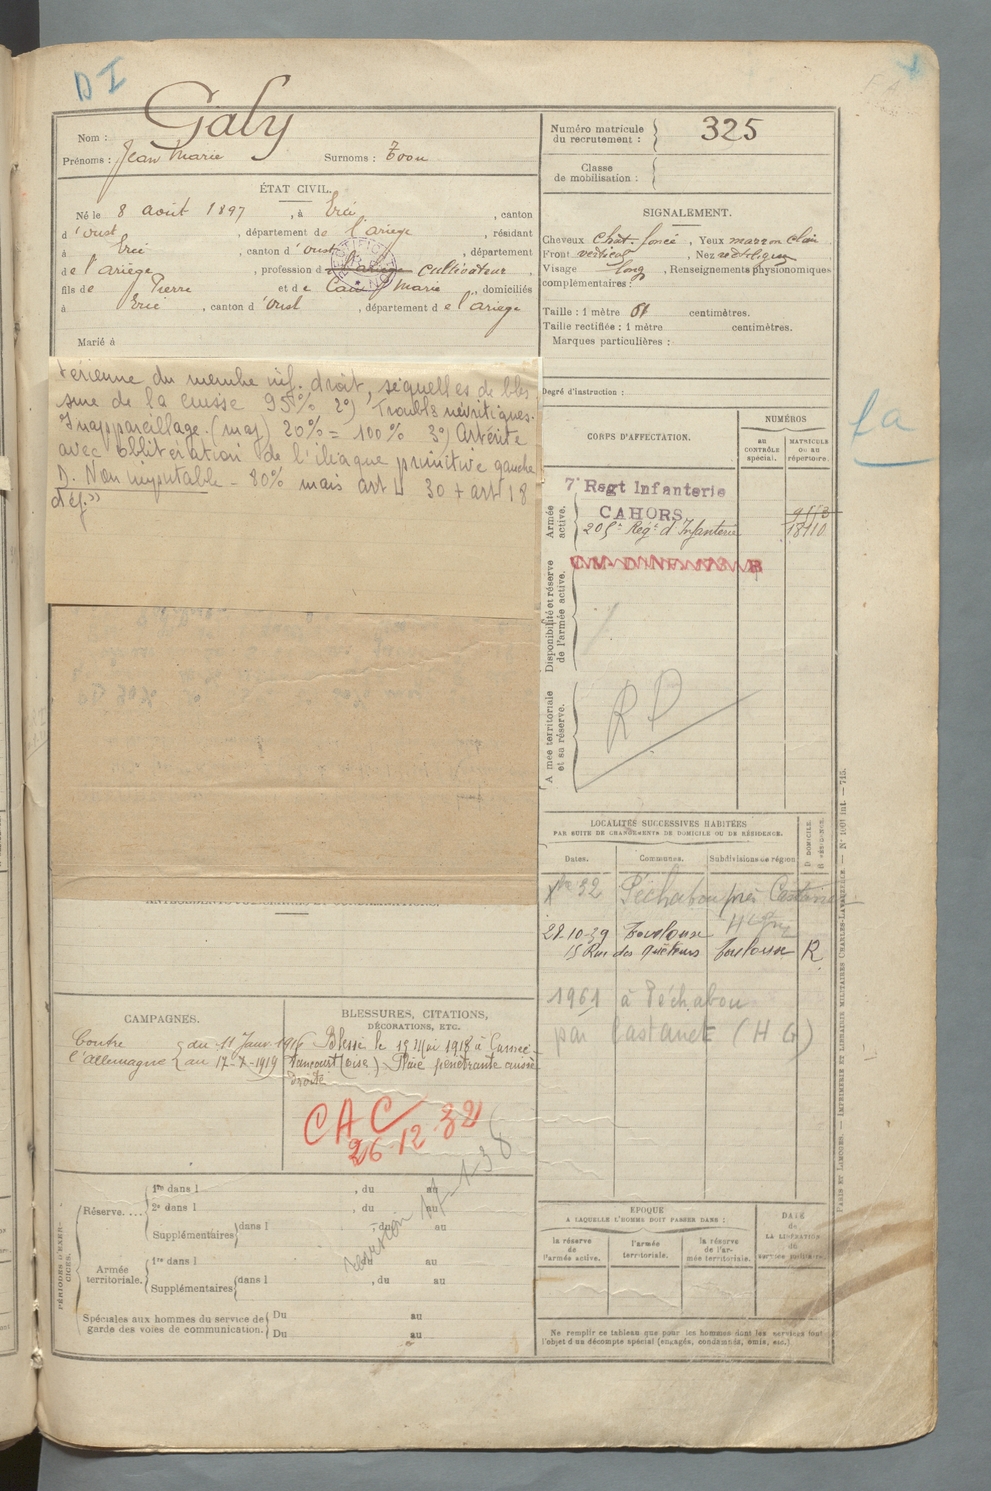 D I
Galy
Nom :
Prénoms : Jean Marie Surnoms :
Numéro matricule
du recrutement : 325
Classe
de mobilisation :
ÉTAT CIVIL.
Né le 8 août 1897, à Ercé, canton
d'Oust, département de l'ariège, résidant
à Ercé, canton d'Oust, département
de l'ariège, profession de l'ariège cultivateur,
fils de Pierre et de Marie, domiciliés
à Ercé, canton d'Oust, département de l'ariège
Marié à
SIGNALEMENT.
Cheveux chât. foncé, Yeux marron clair
Front vertical, Nez rectiligne
Visage long, Renseignements physionomiques
complémentaires :
Taille : 1 mètre 61 centimètres.
Taille rectifiée : 1 mètre centimètres.
Marques particulières :
Degré d'instruction :
térienne du membre inf. droit, séquelles de bles
sure de la cuisse 95% 2°) Troubles névritiques.
Inappareillage. (maj) 20% = 100% 3°) Artérite
avec oblitération de l'iliaque primitive gauche
D. Non imputable - 80% mais art L 30 + art L 18
déf."
CORPS D'AFFECTATION.
NUMÉROS
au
CONTRÔLE
spécial.
MATRICULE
ou au
répertoire.
Armée
active.
7e Regt Infanterie
CAHORS
205e Regt d'Infanterie 18110
Disponibilité et réserve
de l'armée active.
Armée territoriale
et sa réserve.
R D
La
LOCALITÉS SUCCESSIVES HABITÉES
PAR SUITE DE CHANGEMENTS DE DOMICILE OU DE RÉSIDENCE.
Dates. Communes. Subdivisions de région
D DOMICILE.
R RÉSIDENCE.
Xbre 32 Péchabou près Castanet
28-10-39 Toulouse
15 Rue des Toulouse R
1961 à Péchabou
par Castanet (H G)
ANTÉCÉDENTS JUDICIAIRES ET CONDAMNATIONS.
CAMPAGNES.
Contre
l'Allemagne
du 11 Janv. 1916
au 17-7-1919
BLESSURES, CITATIONS,
DÉCORATIONS, ETC.
Blessé le 15 Mai 1918 à
(Oise) Plaie pénétrante cuisse
droite
CAC
26 12 32
PÉRIODES D'EXERCICES.
Réserve....
1re dans l , du au
2e dans l , du au
Supplémentaires dans l , du au
Armée
territoriale.
1re dans l , du au
Supplémentaires dans l , du au
Spéciales aux hommes du service de
garde des voies de communication.
Du au
Du au
EPOQUE
A LAQUELLE L'HOMME DOIT PASSER DANS :
la réserve
de
l'armée active.
l'armée
territoriale.
la réserve
de l'ar-
mée territoriale.
DATE
de
LA LIBÉRATION
du
service militaire.
Ne remplir ce tableau que pour les hommes dont les services font
l'objet d'un décompte spécial (engagés, condamnés, omis, etc.)
PARIS ET LIMOGES. — IMPRIMERIE ET LIBRAIRIE MILITAIRES CHARLES-LAVAUZELLE